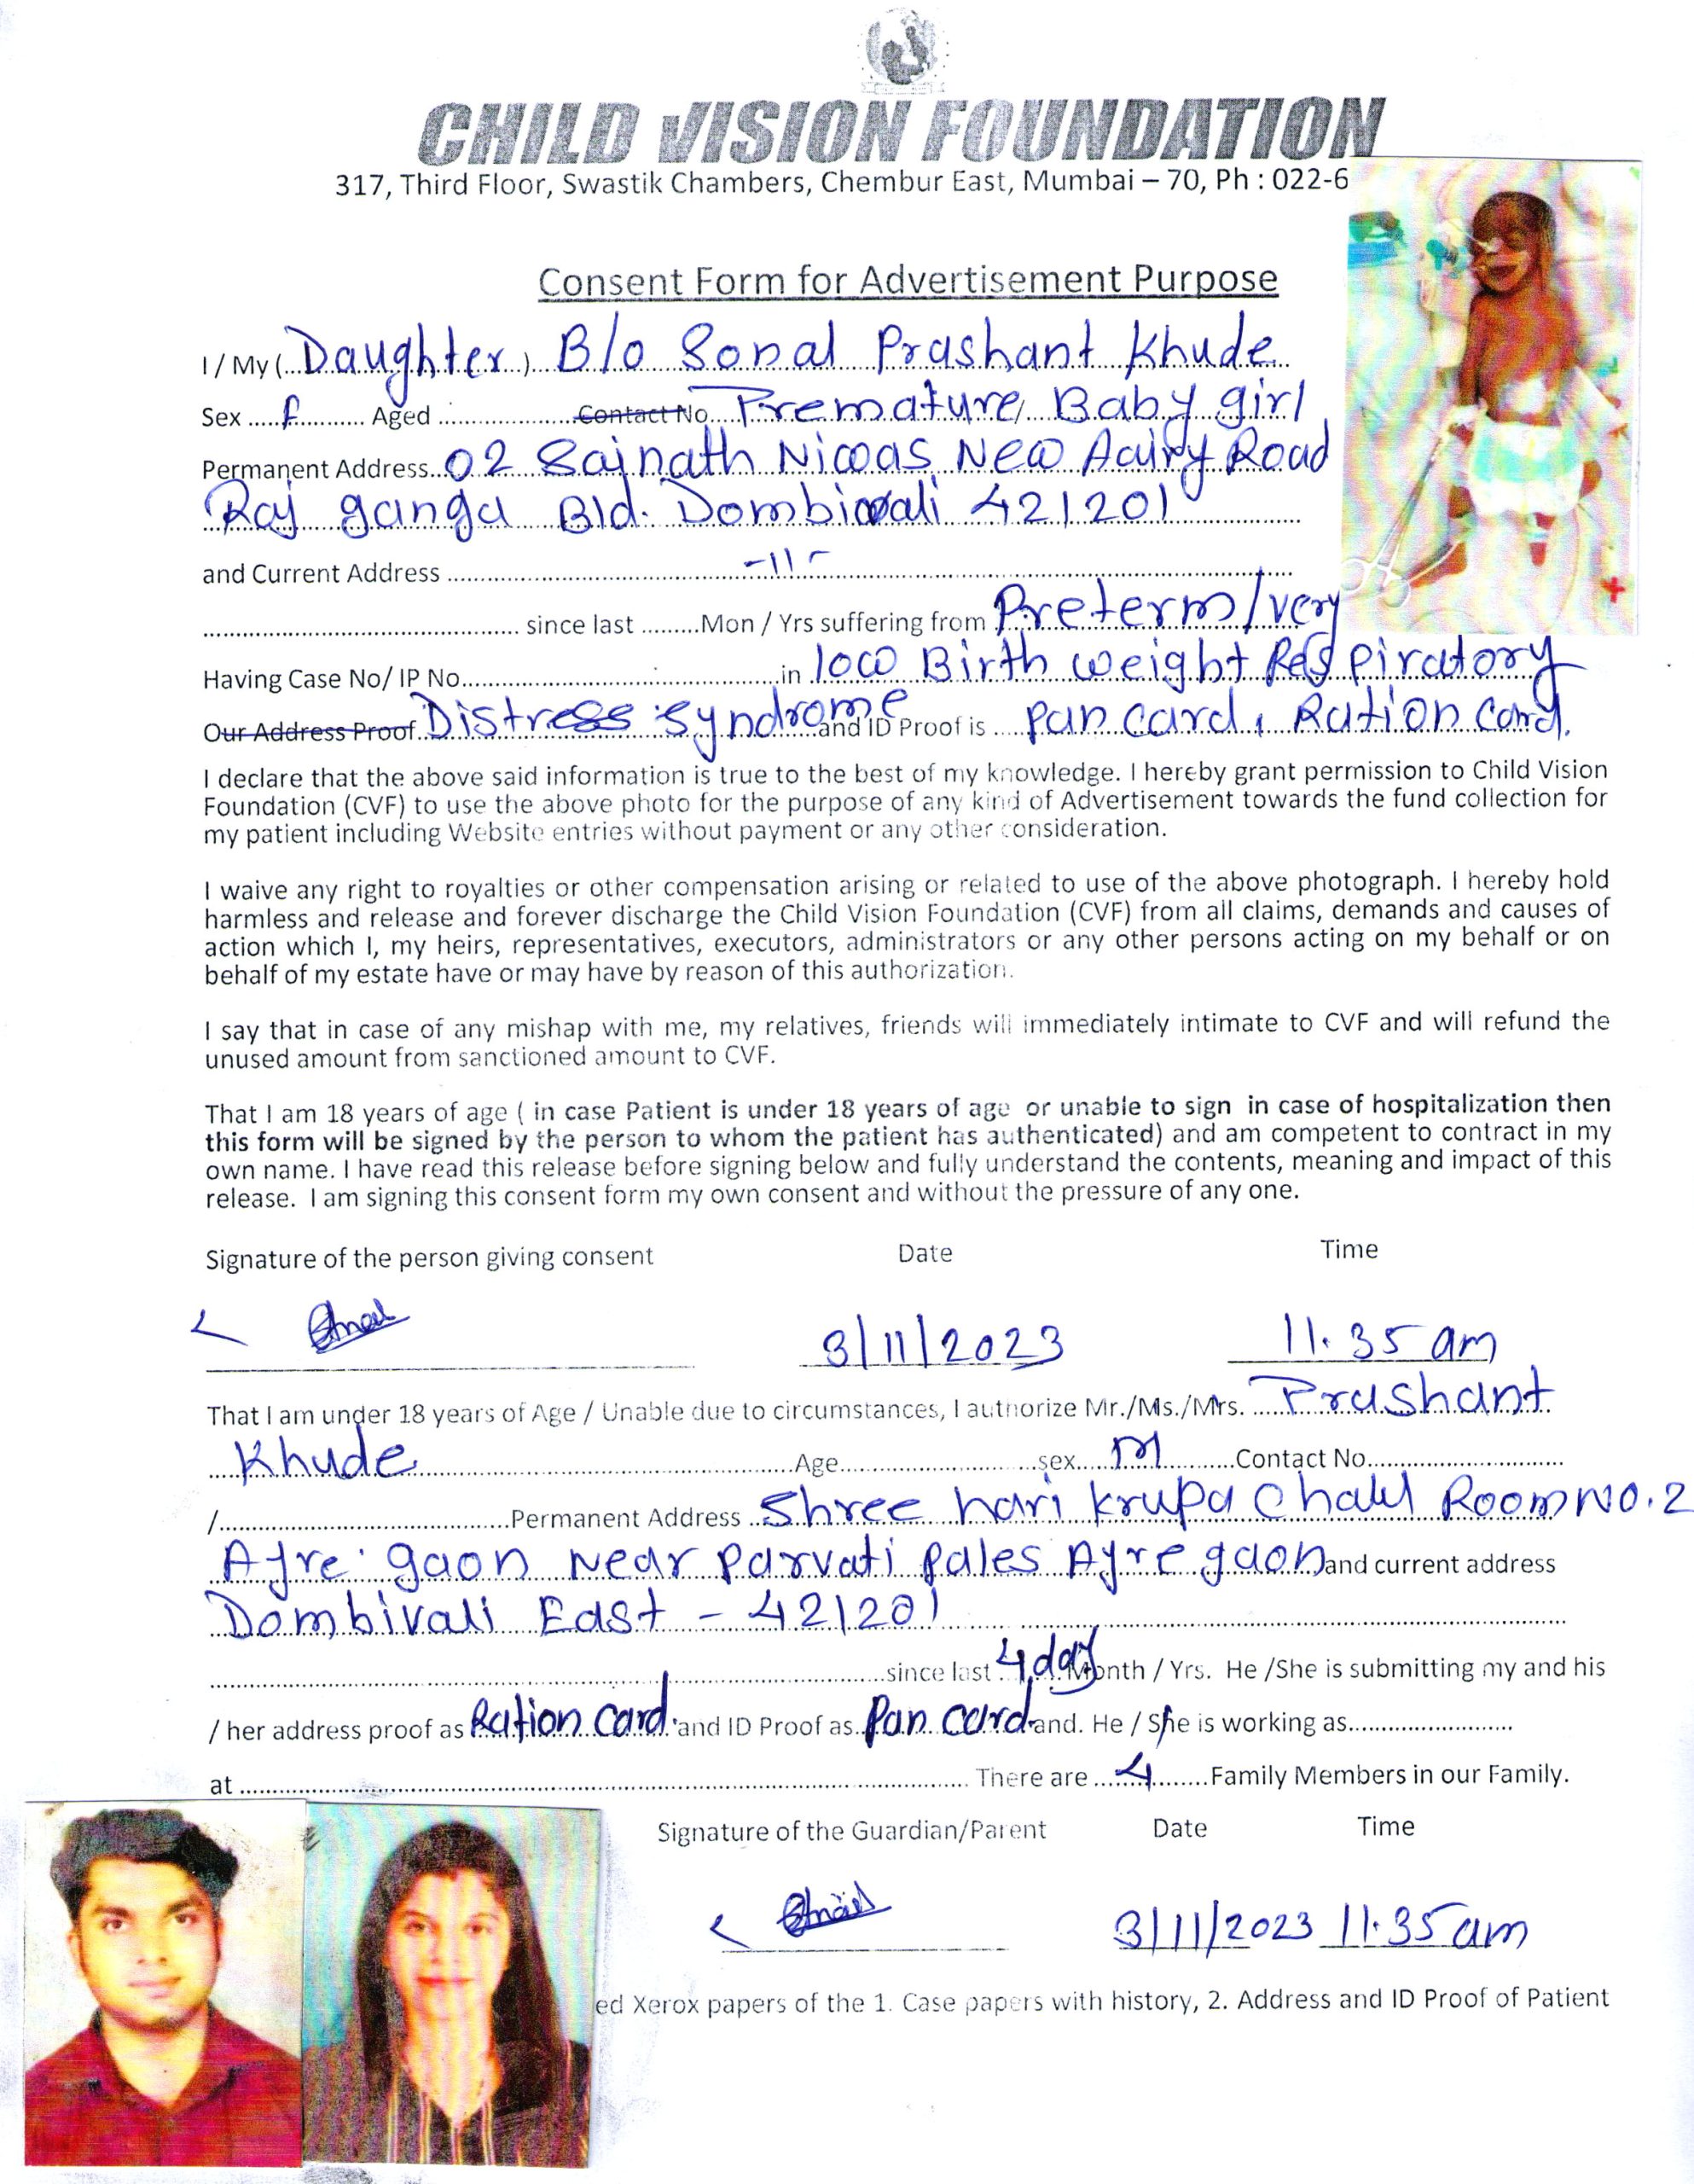 CHILD VISION FOUNDATION
317, Third Floor, Swastik Chambers, Chembur East, Mumbai – 70, Ph : 022-6
Consent Form for Advertisement Purpose
I / My (..Daughter..) B/o Sonal Prashant Khude
Sex .....F........... Aged ..................... Contact No.... Premature, Baby girl
Permanent Address..02 Sainath Niwas New Road
Raj ganga Bld. Dombivali 421201
and Current Address ............ -11-
............ since last .........Mon / Yrs suffering from Preterm/very
Having Case No/ IP No...............in low Birth weight Respiratory
Our Address Proof Distress syndrome and ID Proof is .... pan card, Ration card.
I declare that the above said information is true to the best of my knowledge. I hereby grant permission to Child Vision
Foundation (CVF) to use the above photo for the purpose of any kind of Advertisement towards the fund collection for
my patient including Website entries without payment or any other consideration.
I waive any right to royalties or other compensation arising or related to use of the above photograph. I hereby hold
harmless and release and forever discharge the Child Vision Foundation (CVF) from all claims, demands and causes of
action which I, my heirs, representatives, executors, administrators or any other persons acting on my behalf or on
behalf of my estate have or may have by reason of this authorization.
I say that in case of any mishap with me, my relatives, friends will immediately intimate to CVF and will refund the
unused amount from sanctioned amount to CVF.
That I am 18 years of age ( in case Patient is under 18 years of age or unable to sign in case of hospitalization then
this form will be signed by the person to whom the patient has authenticated) and am competent to contract in my
own name. I have read this release before signing below and fully understand the contents, meaning and impact of this
release. I am signing this consent form my own consent and without the pressure of any one.
Signature of the person giving consent Date Time
3/11/2023 11.35 am
That I am under 18 years of Age / Unable due to circumstances, I authorize Mr./Ms./Mrs. ..... Prashant
Khude ............Age............sex.... M ..........Contact No............
/............Permanent Address ..Shree hari krupa Chawl Room NO.2
Ayre gaon Near parvati pales Ayre gaon and current address
Dombivali East - 421201
............since last 4 day Month / Yrs. He /She is submitting my and his
/ her address proof as Ration Card. and ID Proof as. Pan card and. He / She is working as............
at ............ There are ....4........Family Members in our Family.
Signature of the Guardian/Parent Date Time
3/11/2023 11.35 am
ed Xerox papers of the 1. Case papers with history, 2. Address and ID Proof of Patient